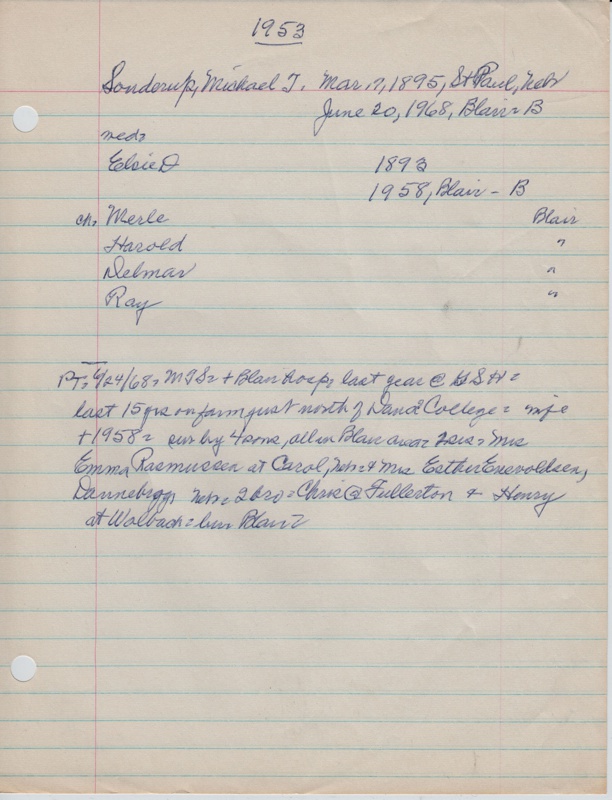 1953
Sonderup, Michael T. Mar. 7, 1895, St Paul, Nebr
June 20, 1968, Blair - B
wed:
Elsie D 1893
1958, Blair - B
ch: Merle Blair
Harold "
Delmar "
Ray "
PT: 6/24/68: MTS: + Blair hosp, last year @ GSH =
last 15 yrs on farm just north of Dana College = wife
+ 1958 = sur by 4 sons, all in Blair area = 2 sis = Mrs
Emma Rasmussen at Carol, Neb = & Mrs Esther Enevoldsen,
Dannebrog, Neb = 2 bro = Chris @ Fullerton & Henry
at Wolbach = bur Blair =